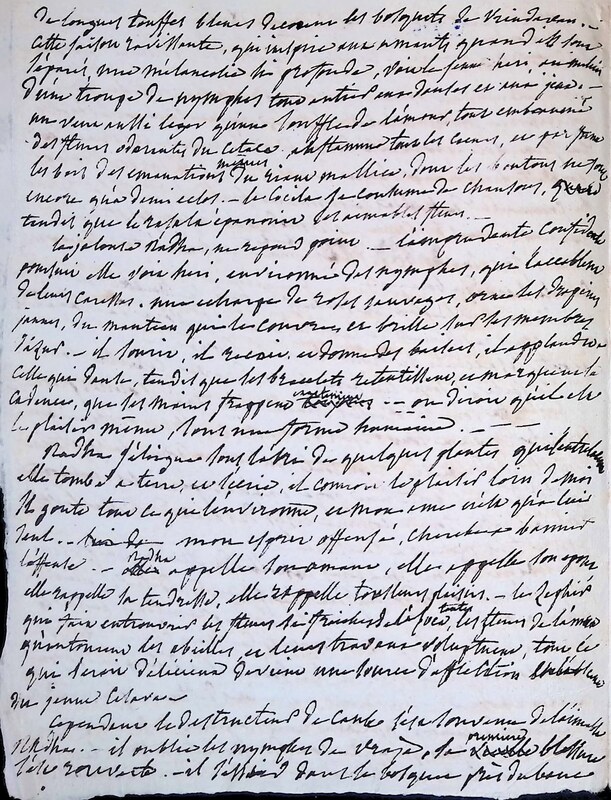 de longues touffes bleues decore les bosquets de Vrindavan. -
cette saison ravissante, qui inspire aux amants quand ils sont
séparés, une melancolie si profonde, voit le jeune heri au milieu
d'une troupe de nymphes tout entier aux danses et aux jeux. -
un vent aussi leger qu'un souffle de l'amour tout embaumé
des fleurs odorantes du Cetaca enflamme tous les coeurs, et parfume
les bois des emanations du riant mallica, dont les boutons ne sont
encore qu'a demi eclos. - le Cocila se consume de chansons,
tandis que le rasala épanouit ses aimables fleurs. -
la jalouse Radha, ne repond point - l'imprudente confidente
poursuit elle voit heri, environné des nymphes, qui l'accablent
de leurs caresses. une echarpe de roses sauvages, orne les
jaunes, du manteau qui le couvre et brille sur ses membres
d'azur. - il sourit, il reçoit et donne des baisers, il applaudit a
celle qui danse, tandis que les bracelets retentissent, et marquent la
cadence, que ses mains frappent - on diroit qu'il est
le plaisir meme, sous une forme humaine. -
Radha s'éloigne sous l'abri de quelques plantes
elle tombe a terre, et s'ecrie, il connoit le plaisir loin de moi
Il goute tout ce qui l'environne, et mon ame n'est qu'a lui
seul. - mon esprit offensé, cherche a bannir
l'offense. - Radha appelle son amant, elle appelle son epoux
elle rappelle sa tendresse, elle rappelle tous leurs plaisirs. - le Zephir
qui fait entrouvrir les fleurs la fraicheur de les fleurs de l'
qu'entourent les abeilles et leurs travaux voluptueux, tout ce
qui seroit délicieux devient une source d'affliction
du jeune
Cependant le destructeur de s'est souvenu de l'aimable
Radha. - il oublie les nymphes de vraja, sa premiere blessure
s'est rouverte - il s'assied dans le bosquet près du banc